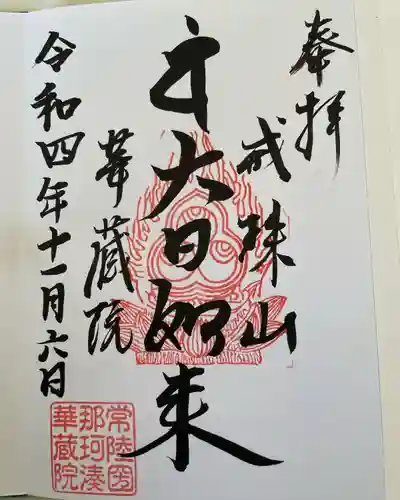 奉拝
戒珠山
大日如来
華蔵院
令和四年十一月六日
常陸
那珂湊
華蔵院